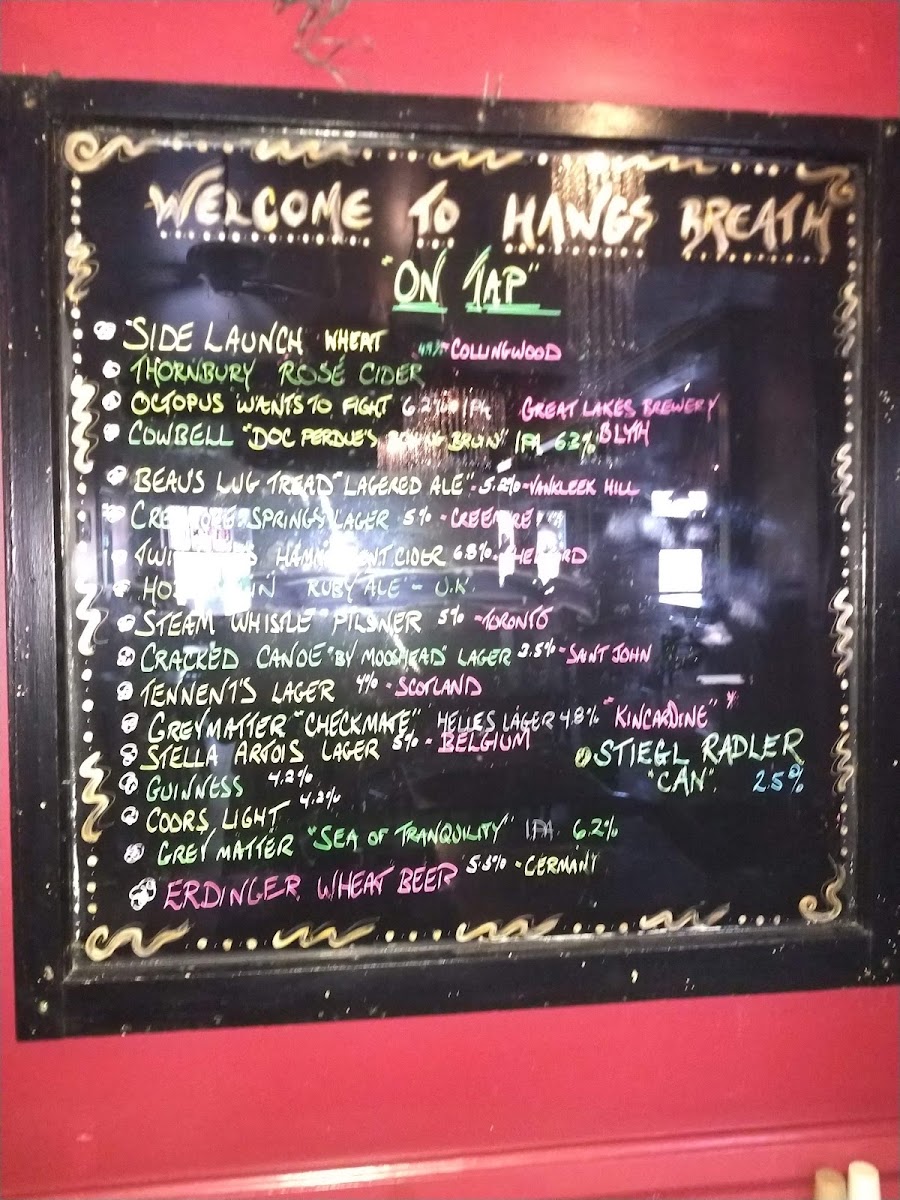 WELCOME TO HAWGS BREATH
"ON TAP"
"SIDE LAUNCH" WHEAT COLLINGWOOD
THORNBURY ROSÉ CIDER
OCTOPUS WANTS TO FIGHT 6.2% IPA GREAT LAKES BREWERY
COWBELL "DOC PERDUE'S BOXING BRUIN" IPA 6.3% BLYTH
BEAU'S LUG TREAD "LAGERED ALE" - 5.2% - VANKLEEK HILL
SPRINGS LAGER 5% - CREEMORE
CIDER 6.8%
RUBY ALE - U.K.
STEAM WHISTLE PILSNER 5% - TORONTO
CRACKED CANOE "BY MOOSHEAD" LAGER 3.5% - SAINT JOHN
TENNENT'S LAGER 4% - SCOTLAND
GREYMATTER "CHECKMATE" HELLES LAGER 4.8% "KINCARDINE"
STELLA ARTOIS LAGER 5% - BELGIUM
STIEGL RADLER
"CAN" 2.5%
GUINNESS 4.2%
COORS LIGHT 4.2%
GREY MATTER "SEA OF TRANQUILITY" IPA 6.2%
ERDINGER WHEAT BEER 5.3% - GERMANY